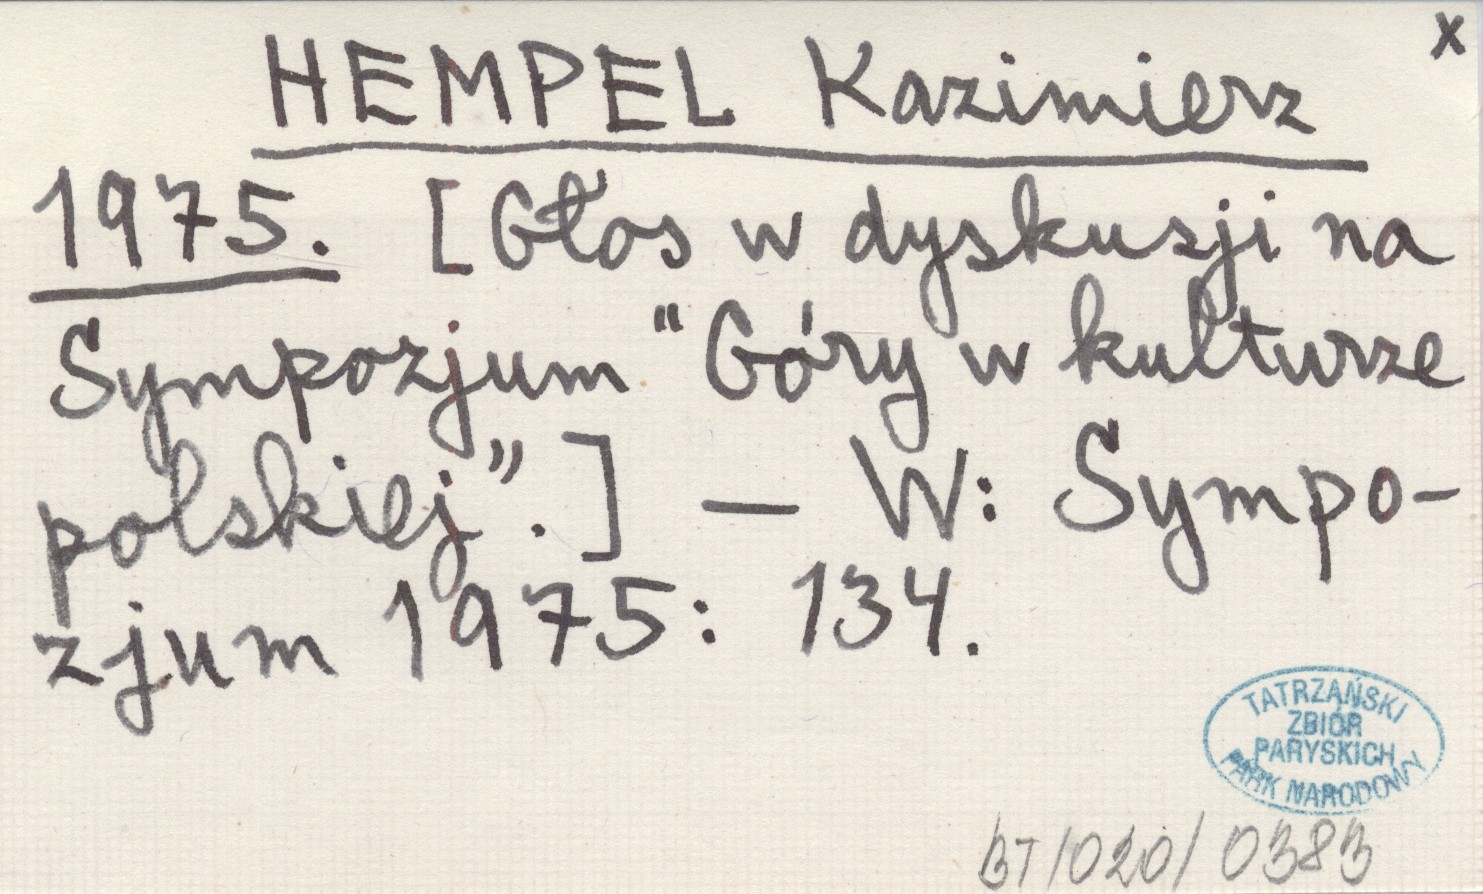 x
HEMPEL Kazimierz
1975. [Głos w dyskusji na
Sympozjum "Góry w kulturze
polskiej”.] — W: Sympo-
zjum 1975: 134.
TATRZAŃSKI
ZBIÓR
PARYSKICH
PARK NARODOWY
BT/020/0383